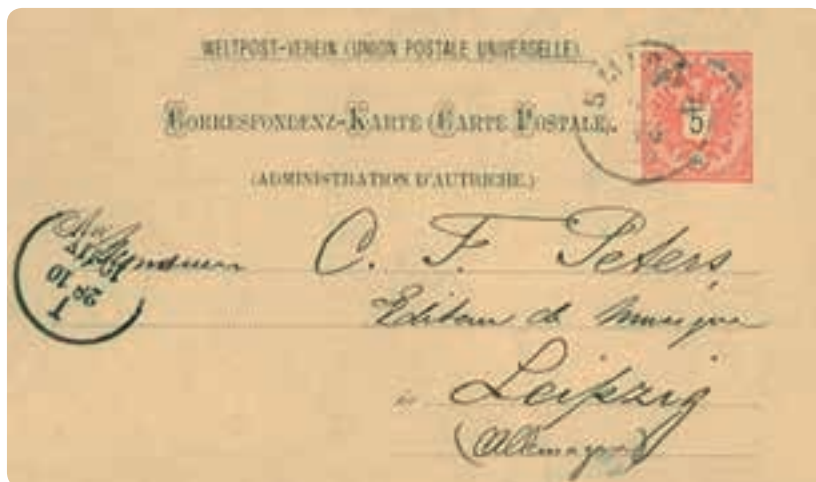 WELTPOST-VEREIN (UNION POSTALE UNIVERSELLE).
CORRESPONDENZ-KARTE (CARTE POSTALE).
5
(ADMINISTRATION D'AUTRICHE.)
C. F. Peters
Editeur de musique
à Leipzig
(Allemagne)
28
10